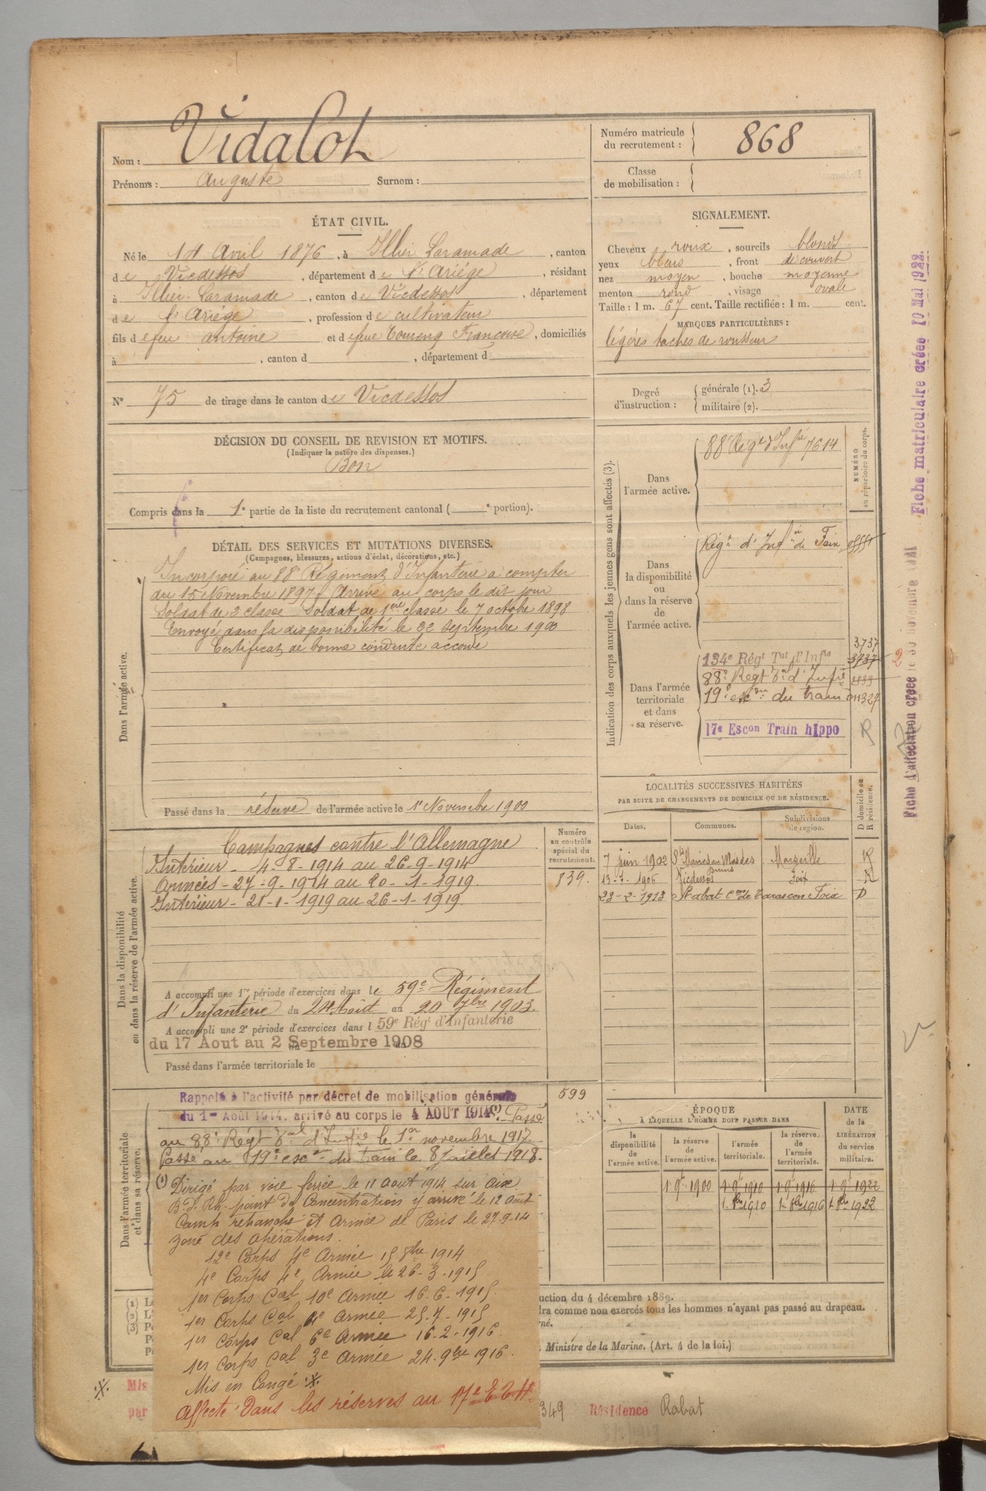 Nom : Vidalot
Prénoms : Auguste Surnom :
Numéro matricule du recrutement : 868
Classe de mobilisation :
ÉTAT CIVIL.
Né le 14 Avril 1876, à Illier Laramade, canton
de Vicdessos, département de l'Ariège, résidant
à Illier-Laramade, canton de Vicdessos, département
de l'Ariège, profession de cultivateur
fils de feu Antoine et de feue Françoise, domiciliés
à , canton d , département d
SIGNALEMENT.
Cheveux roux, sourcils blonds
yeux bleus, front découvert
nez moyen, bouche moyenne
menton rond, visage ovale
Taille : 1 m. 67 cent. Taille rectifiée : 1 m. cent.
MARQUES PARTICULIÈRES :
légères taches de rousseur
N° 75 de tirage dans le canton de Vicdessos
Degré d'instruction : générale (1). 3
militaire (2).
DÉCISION DU CONSEIL DE REVISION ET MOTIFS.
(Indiquer la nature des dispenses.)
Bon
Compris dans la 1e partie de la liste du recrutement cantonal ( e portion).
DÉTAIL DES SERVICES ET MUTATIONS DIVERSES.
(Campagnes, blessures, actions d'éclat, décorations, etc.)
Dans l'armée active.
Incorporé au 88e Régiment d'Infanterie à compter
du 15 Novembre 1897. Arrivé au corps le dit jour
Soldat de 2e classe Soldat de 1ère classe le 7 octobre 1898
Envoyé dans la disponibilité le 22 Septembre 1900
Certificat de bonne conduite accordé
Passé dans la réserve de l'armée active le 1er Novembre 1900
Indication des corps auxquels les jeunes gens sont affectés (3).
NUMÉRO au répertoire du corps.
Dans l'armée active.
88e Régt d'Infie 7614
Dans la disponibilité ou dans la réserve de l'armée active.
Régt d'Infie de Foix
Dans l'armée territoriale et dans sa réserve.
3737
134e Régt Tal d'Infie 3737
88e Régt Tal d'Infie
19e escon du train
17e Escon Train hippo R
Fiche matriculaire créée 10 Mai 1922.
LOCALITÉS SUCCESSIVES HABITÉES
PAR SUITE DE CHANGEMENTS DE DOMICILE OU DE RÉSIDENCE.
Dates. Communes. Subdivisions de région. D domicile ou R résidence.
7 juin 1902 Marseille R
Vicdessos Foix R
Foix D
Dans la disponibilité ou dans la réserve de l'armée active.
Numéro au contrôle spécial du recrutement.
839.
Campagnes contre l'Allemagne
Intérieur - 4-8-1914 au 26-9-1914
Armées - 27-9-1914 au 20-1-1919.
Intérieur - 21-1-1919 au 26-1-1919
A accompli une 1re période d'exercices dans le 59e Régiment
d'Infanterie du 24 Août au 20 7bre 1903.
A accompli une 2e période d'exercices dans l 59e Régt d'Infanterie
du 17 Aout au 2 Septembre 1908
Passé dans l'armée territoriale le
Dans l'armée territoriale et dans sa réserve.
599
Rappelé à l'activité par décret de mobilisation générale
du 1er Août 1914, arrivé au corps le 4 AOUT 1914 (1). Passé
au 88e Régt Tal d'Infie le 1er novembre 1917
Passé au 19e escon du Train le 8 Juillet 1918.
(1) Dirigé par voie ferrée le 11 août 1914 sur
point de Concentration y arrivé le 12 août
Camp retranché et Armée de Paris le 27.9.14
zone des opérations.
12e Corps 4e Armée 15 8bre 1914
4e Corps 4e Armée le 26-3-1915
1er Corps Cal 10e Armée 16-6-1915
1er Corps Cal Armée 25-7-1915
1er Corps Cal 6e Armée 16-2-1916.
1er Corps Cal 3e Armée 24-9bre 1916.
Mis en Congé
Affecté dans les réserves au 17e E.T.H.
ÉPOQUE
À LAQUELLE L'HOMME DOIT PASSER DANS
la disponibilité de l'armée active. la réserve de l'armée active. l'armée territoriale. la réserve de l'armée territoriale.
DATE de la LIBÉRATION du service militaire.
uction du 4 décembre 1889.
dra comme non exercés tous les hommes n'ayant pas passé au drapeau.
Ministre de la Marine. (Art. 4 de la loi.)
Mis
par
349 Résidence Rabat